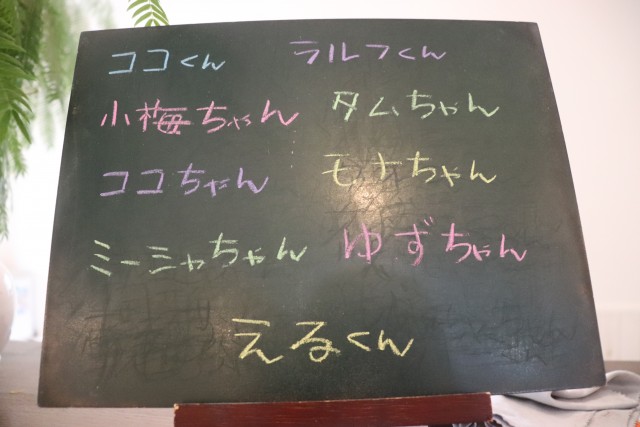 ココくん ラルフくん
小梅ちゃん タムちゃん
ココちゃん モナちゃん
ミーシャちゃん ゆずちゃん
えるくん